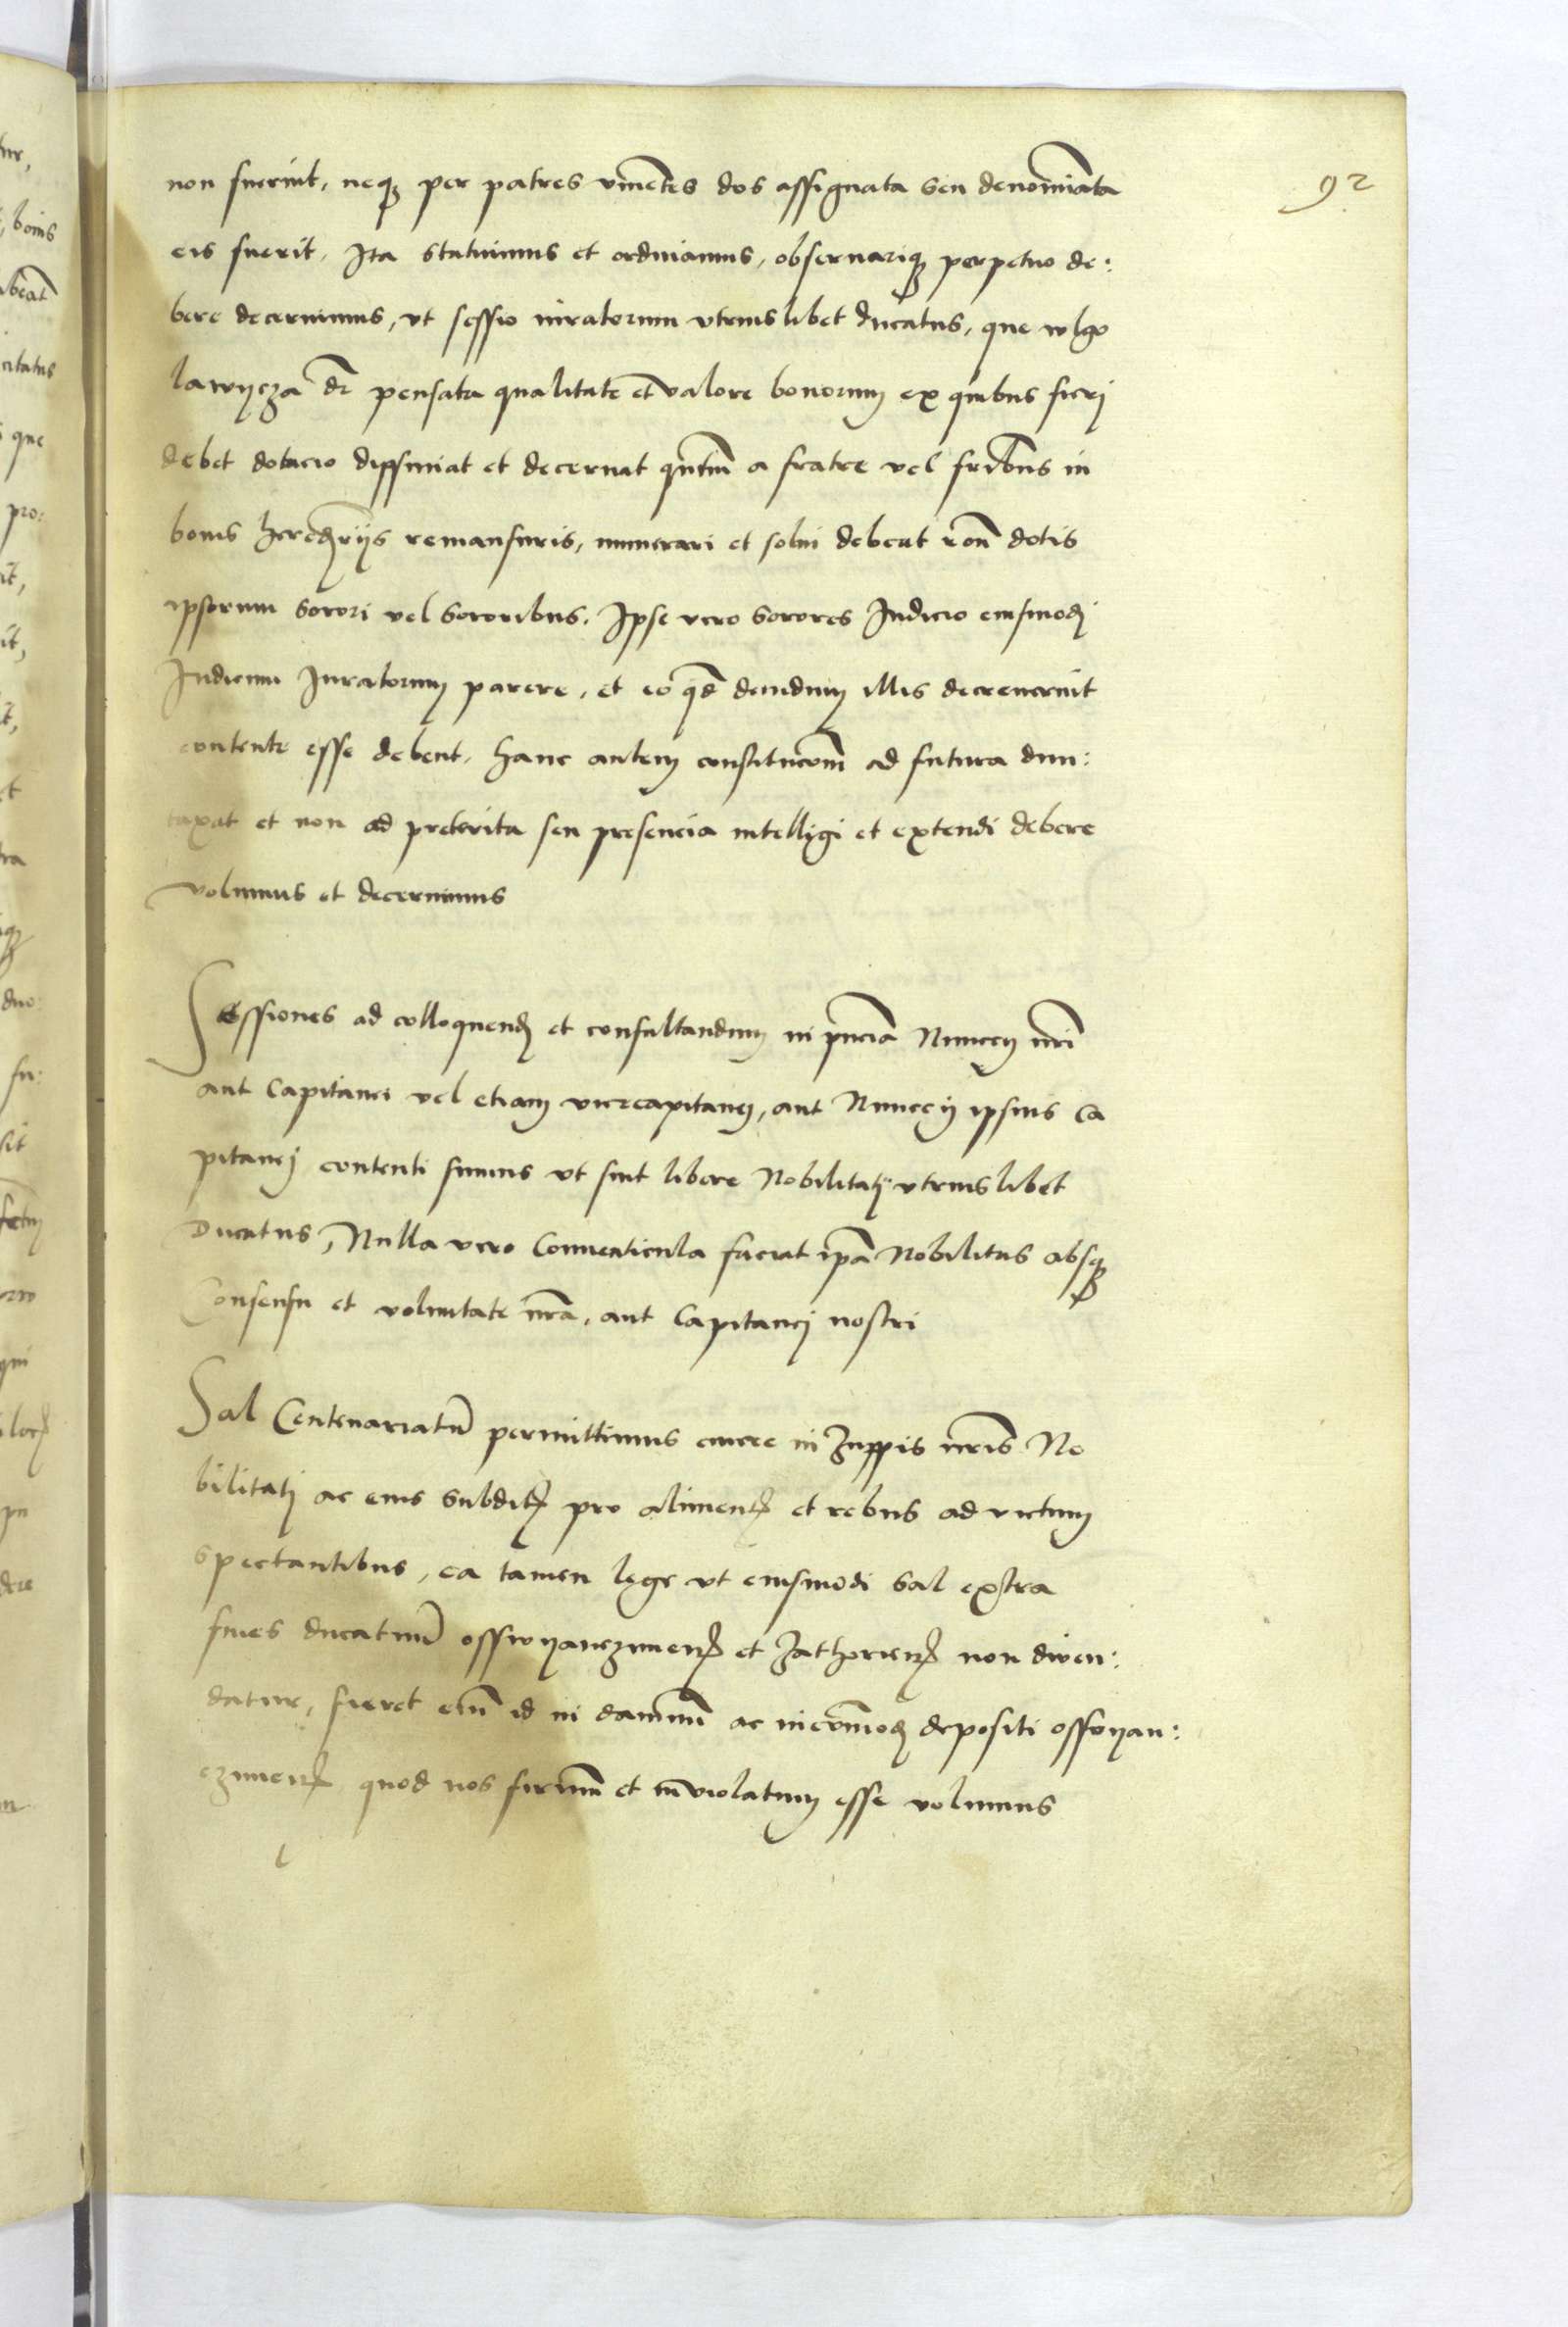 92
non fuerint, neq₃ per patres viuentes dos assignata seu denominata
eis fuerit, Ita statuimus et ordinamus, obseruariq₃ perpetuo de:
bere decernimus, vt sessio iuratorum vtriuslibet ducatus, que wlgo
lawycza dr̄ pensata qualitate et valore bonorum ex quibus fierj
debet dotacio diffiniat et decernat qntum̄ a fratre vel fribus̄ in
bonis heređrijs remansuris, numerari et solui debeat rōn dotis
ipsorum sorori vel sororibus. Ipse vero sorores Judicio eiusmodj
Judicum Juratorum parere, et eo qđ dandum illis decreuerint
contente esse debent, hanc autem constitucōm ad futura dun:
taxat et non ad preterita seu presencia intelligi et extendi debere
volumus et decernimus
Sessiones ad colloquenđ et consultandum in pn̄cia Nunccij nrī
aut Capitanei vel etiam vicecapitanej, aut Nunccij ipsius Ca
pitanej contenti sumus vt sint libere Nobilitatj vtriuslibet
Ducatus, Nulla vero Conuenticula faciat ipā Nobilitas absq₃
Consensu et voluntate nrā, aut Capitanej nostri
Sal Centenariatū permittimus emere in Zuppis nrīs No
bilitatj ac eius subditꝭ pro alimentꝭ et rebus ad victum
spectantibus, ea tamen lege vt eiusmodi sal extra
fines ducatuū osswyanczimenꝭ et Zathoriensꝭ non diuen:
datur, fieret enī id in damnū ac incōmođ depositi osswyan:
czimenꝭ quod nos firmū et īuiolatum esse volumus